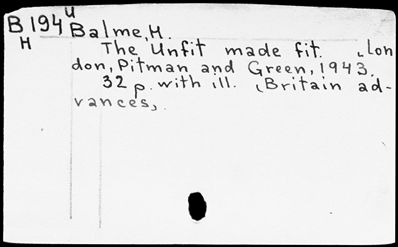 B 194 U Balme, H.
H The Unfit made fit. Lon
don, Pitman and Green, 1943.
32 p. with ill. (Britain ad-
vances,